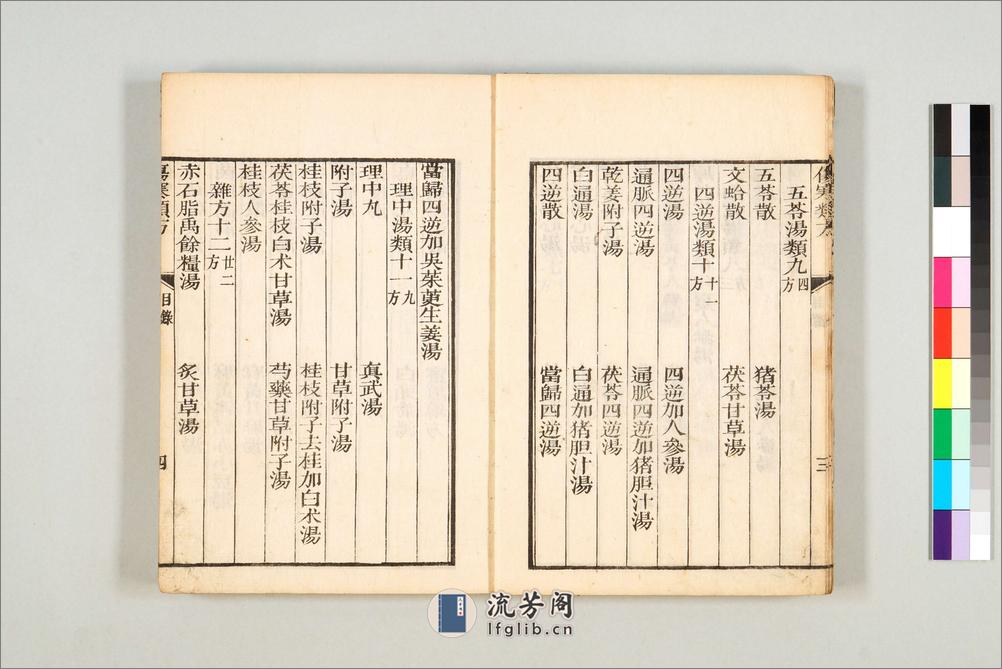 傷寒類方
三
五苓湯類九 四方
五苓散 猪苓湯
文蛤散 茯苓甘草湯
四逆湯類十 十一方
四逆湯 四逆加人參湯
通脈四逆湯 通脈四逆加猪胆汁湯
乾姜附子湯 茯苓四逆湯
白通湯 白通加猪胆汁湯
四逆散 當歸四逆湯
當歸四逆加吳茱萸生姜湯
理中湯類十一 九方
理中丸 真武湯
附子湯 甘草附子湯
桂枝附子湯 桂枝附子去桂加白术湯
茯苓桂枝白术甘草湯 芍藥甘草附子湯
桂枝人參湯
雜方十二 廿二方
赤石脂禹餘糧湯 炙甘草湯
傷寒類方 目錄 四
流芳阁
lfglib.cn